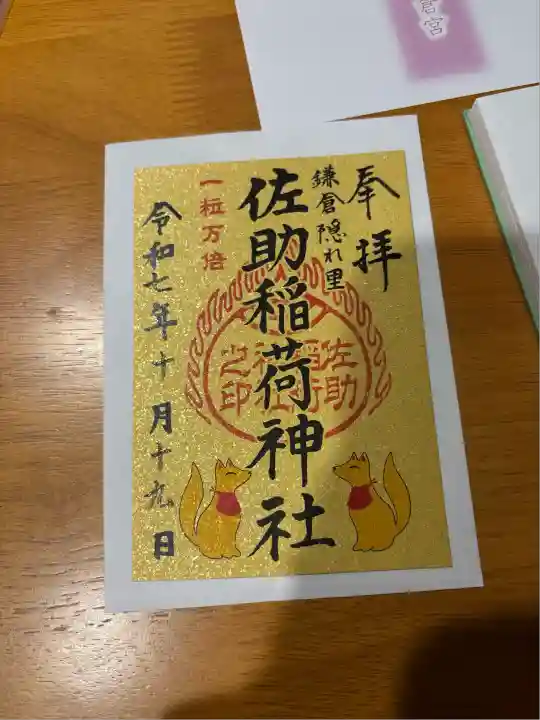 奉拝
鎌倉隠れ里
佐助稲荷神社
一粒万倍
令和七年十月十九日
佐助
稲荷
神社
之印
倉宮